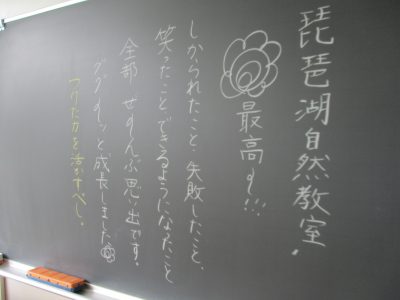 琵琶湖自然教室。
最高〜!!!
しかられたこと、失敗したこと、
笑ったこと できるようになったこと
全部 ぜーんぶ思い出です。
ググーッと成長しました
つけた力を活かすべし。